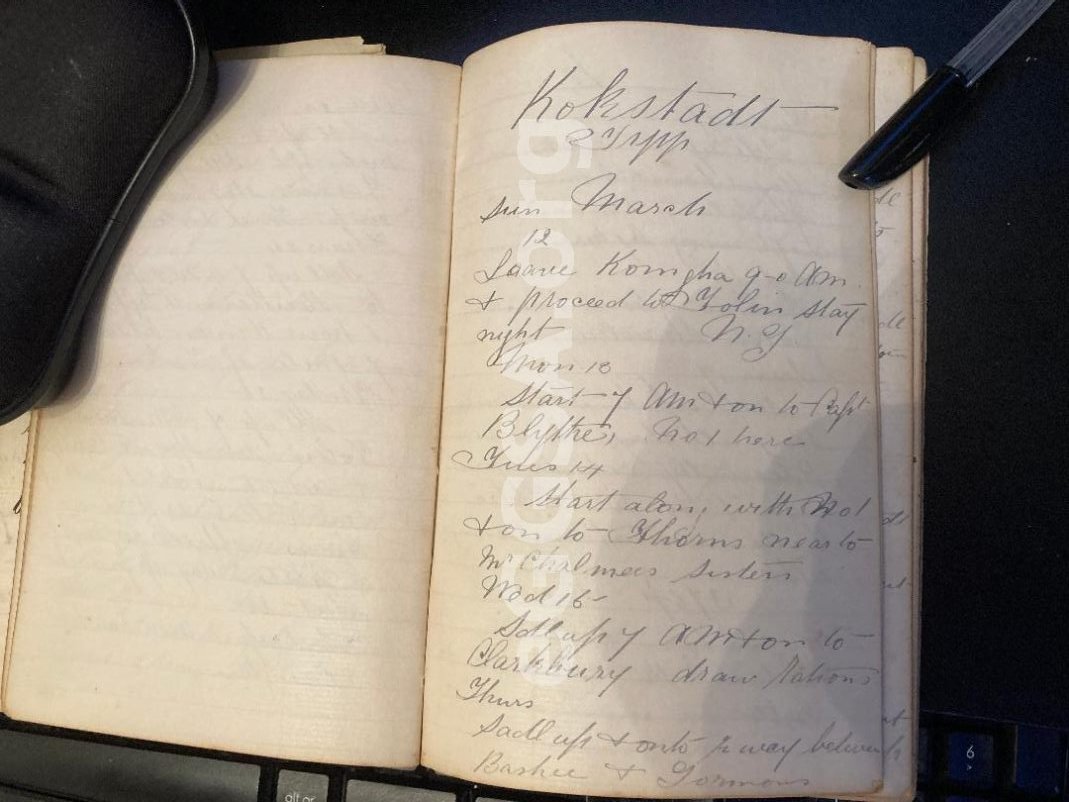 Kokstadt
2 Typp
Sun March
12
Leave Komgha 9-0 AM
& proceed to Tolin stay
night N. G
Mon 13
Start 7 AM & on to Capt
Blythes, Not here
Tues 14
Start along with Wol
& on to Thorns near to
Mr Chalmers Sisters
Wed 15
Sdl up 7 AM & on to
Clarkbury draw Rations
Thurs
Sadl up & onto ½ way between
Bashee & Gormons
eGGSA.org
alt gr
6